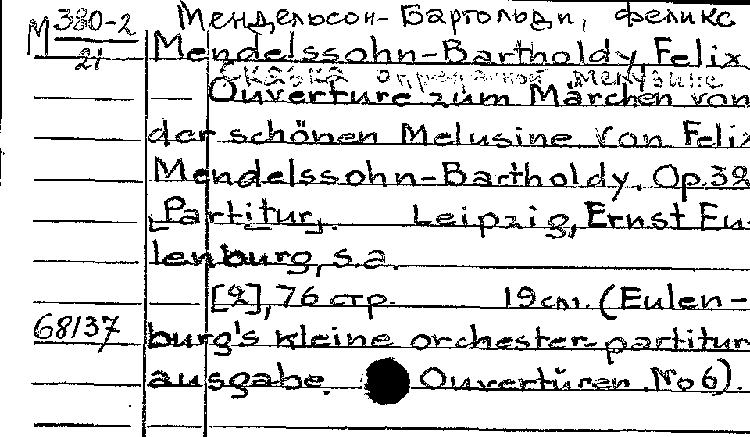 Мендельсон-Бартольди, Феликс
М 380-2
21
Mendelssohn-Bartholdy, Felix
Сказка о прекрасной Мелузине
Ouverture zum Märchen von
der schönen Melusine von Felix
Mendelssohn-Bartholdy. Op. 32
[Partitur]. Leipzig, Ernst Eu-
lenburg, s.a.
[2], 76 стр. 19 см. (Eulen-
68137
burg's kleine orchester-partitur
ausgabe. Ouvertüren No 6).